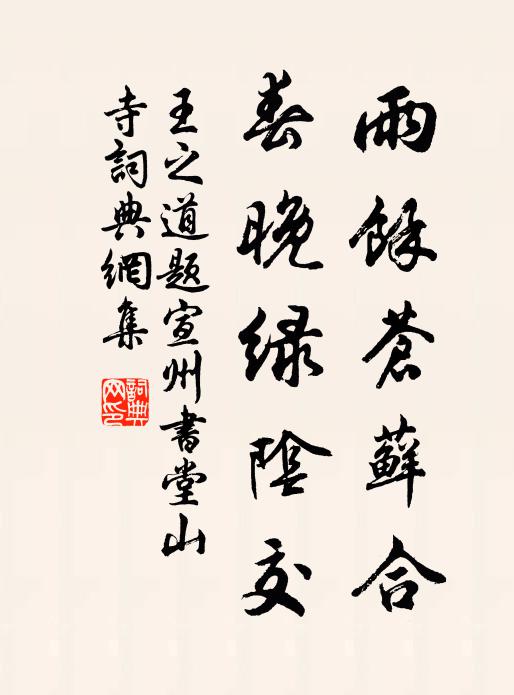 雨餘蒼蘚合
春晚綠陰交
王之道題宣州書堂山
寺詞典網集
詞典網印